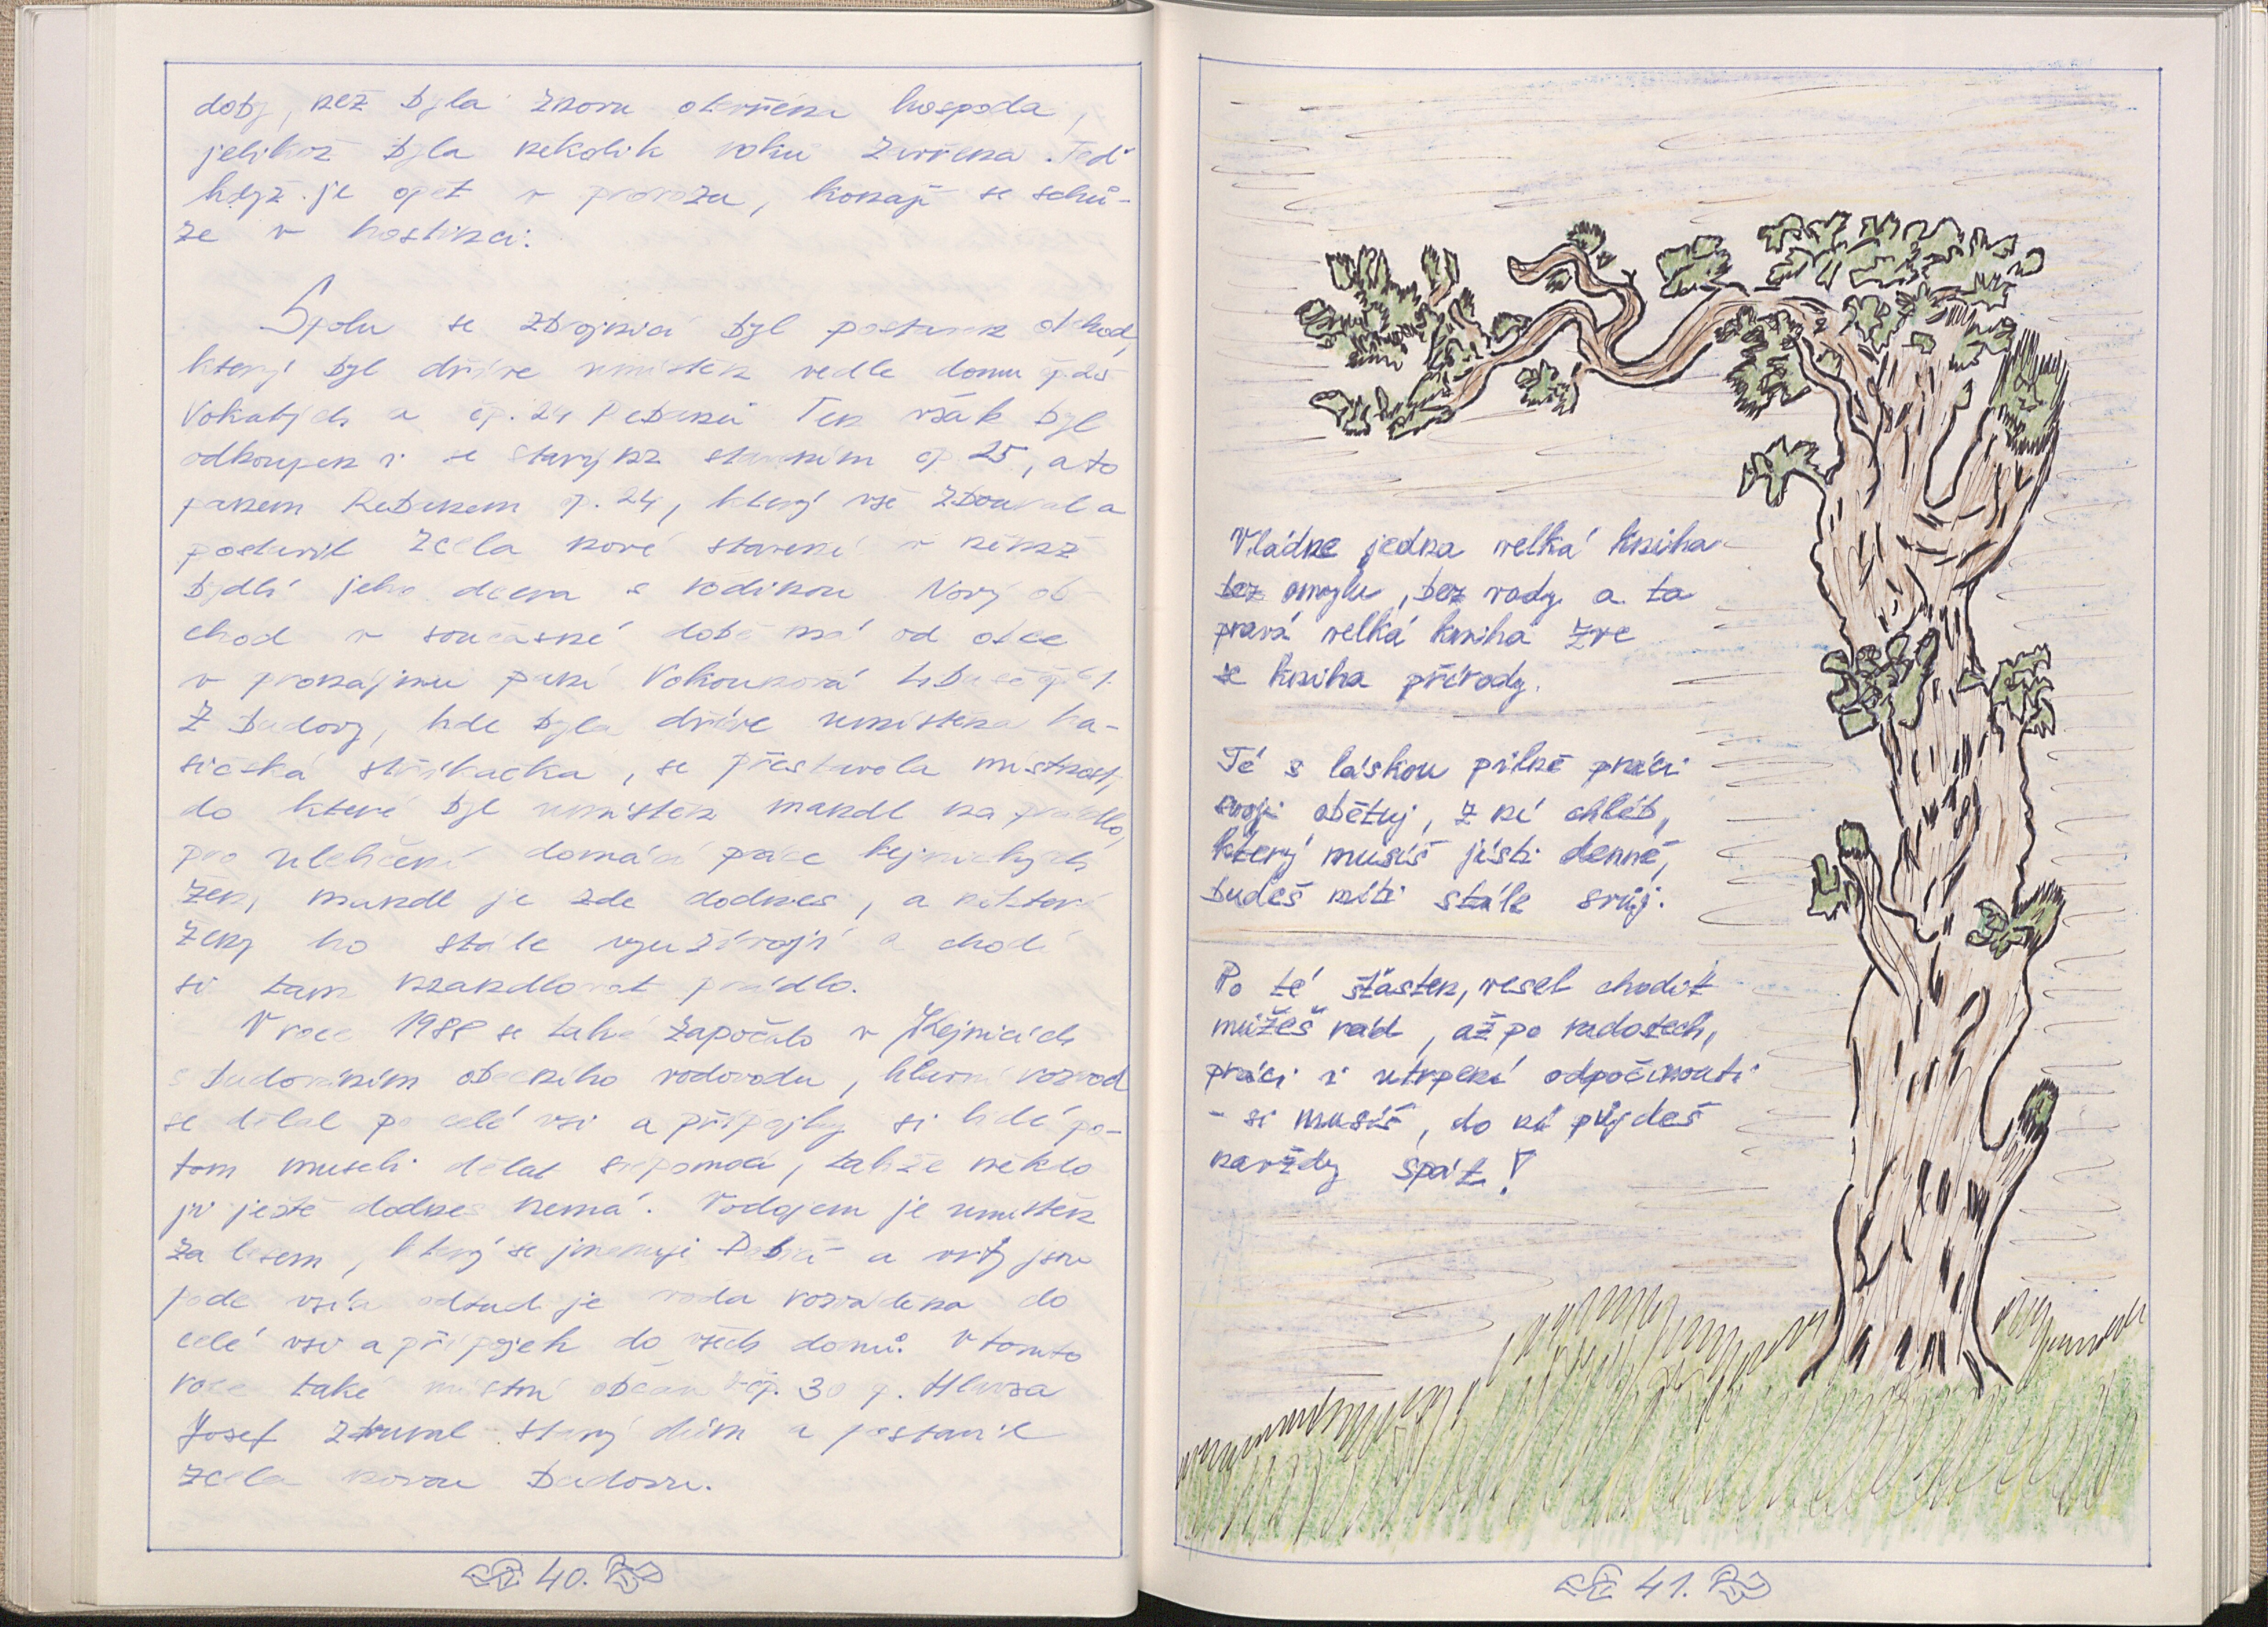 doby, než byla znovu otevřena hospoda,
jelikož byla několik roků zavřena. Teď
když je opět v provozu, konají se schů-
ze v hostinci.
Spolu se zbrojnicí byl postaven obchod,
který byl dříve umístěn vedle domu čp 25
Vokatých a čp. 24 Ten však byl
odkoupen i se starým stavením čp 25, a to
panem čp. 24, který vše zboural a
postavil zcela nové stavení v němž
bydlí jeho dcera s rodinou Nový ob-
chod v současné době má od obce
v pronájmu paní Vokounová
Z budovy, kde byla dříve umístěna ha-
sičská stříkačka, se přestavěla místnost,
do které byl umístěn mandl na prádlo,
pro ulehčení domácí práce kejnických
žen, mandl je zde dodnes, a některé
ženy ho stále využívají a chodí
si tam mandlovat prádlo.
V roce 1988 se také započalo v Kejnicích
s budováním obecního vodovodu, hlavní rozvod
se dělal po celé vsi a přípojky si lidé po-
tom museli dělat svépomocí, takže někdo
ji ještě dodnes nemá. Vodojem je umístěn
za lesem, který se jmenuje a vrty jsou
pode vsí a odtud je voda rozváděna do
celé vsi a přípojek do všech domů. V tomto
roce také místní občan včp. 30 p. Hlůza
Josef zboural starý dům a postavil
zcela novou budovu.
40.
Vládne jedna velká kniha
bez omylu, bez vady a ta
pravá velká kniha zve
se kniha přírody.
Té s láskou pilně práci
svoji obětuj, z ní chléb,
který musíš jísti denně,
budeš míti stále svůj.
Po té šťasten, vesel chodit
můžeš rád, až po radostech,
práci i utrpení odpočinouti
- si musíš, do ní půjdeš
navždy spát!
41.